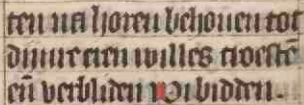 ten uut horen behouen tot
dijnre eren willes troesten
eñ verbliden Wi bidden.